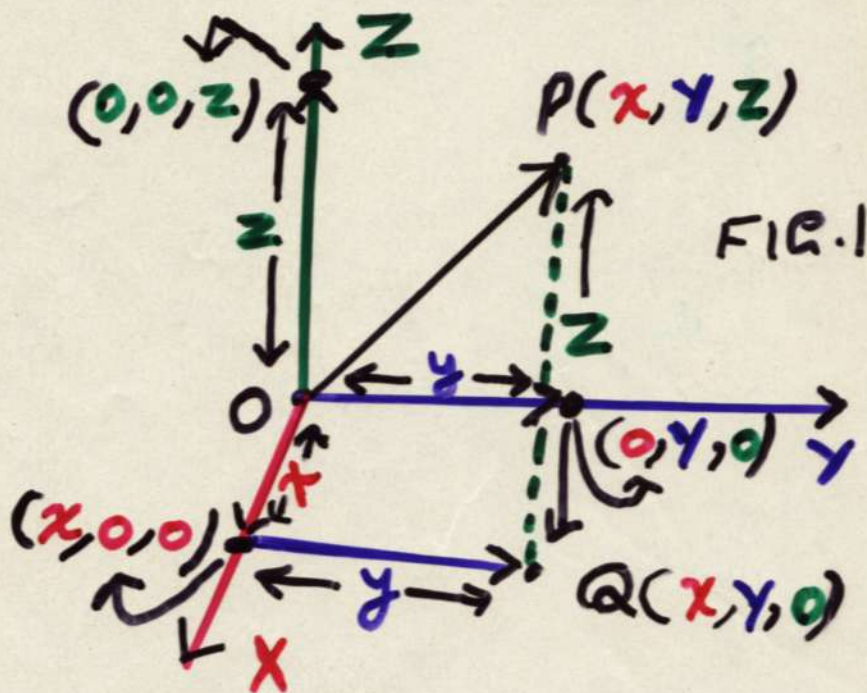 Z
(0,0,z)
P(x,y,z)
FIG.1
z
z
y
O
(0,y,0)
Y
x
(x,0,0)
y
Q(x,y,0)
X